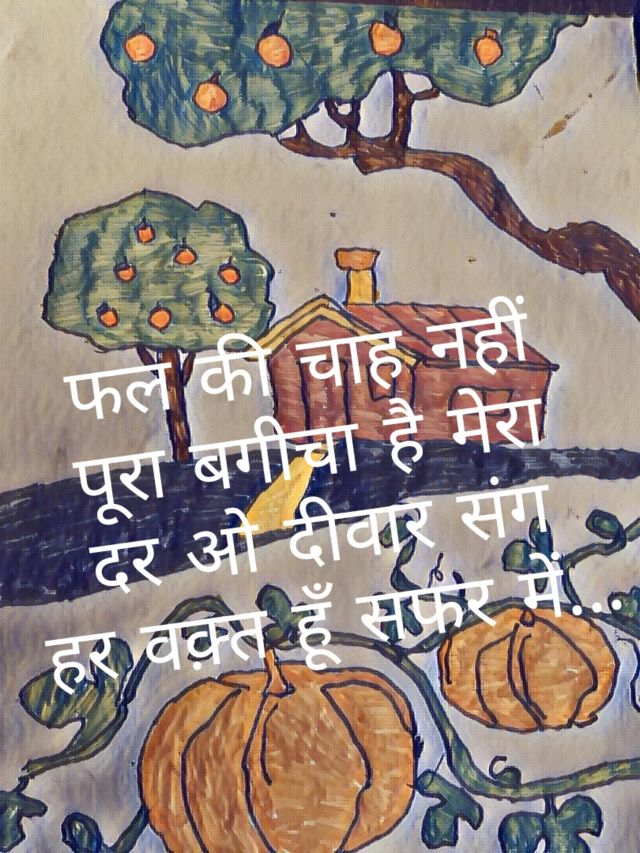 फल की चाह नहीं
पूरा बगीचा है मेरा
दर ओ दीवार संग
हर वक़्त हूँ सफर में...